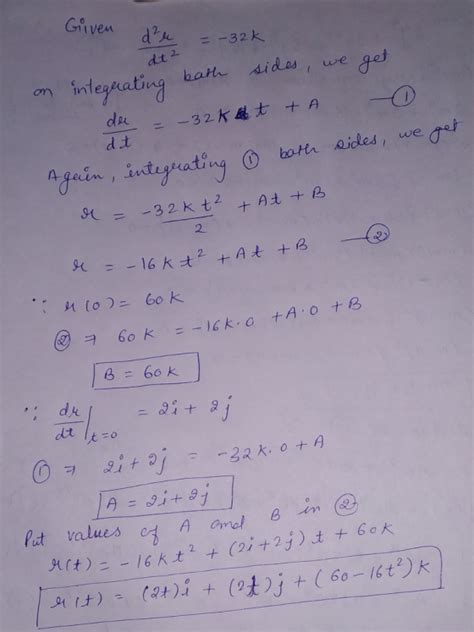 Given d²r/dt² = -32k
on integrating both sides, we get
dr/dt = -32k t + A —①
Again, integrating ① both sides, we get
r = -32kt²/2 + At + B
r = -16kt² + At + B —②
∵ r(0) = 60k
② ⇒ 60k = -16k·0 + A·0 + B
B = 60k
∵ dr/dt|t=0 = 2i + 2j
① ⇒ 2i + 2j = -32k·0 + A
A = 2i + 2j
Put values of A and B in ②
r(t) = -16kt² + (2i+2j)t + 60k
r(t) = (2t)i + (2t)j + (60-16t²)k